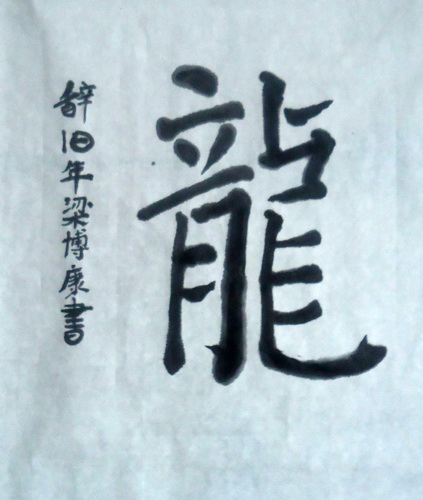 龍
辞旧年梁博康書